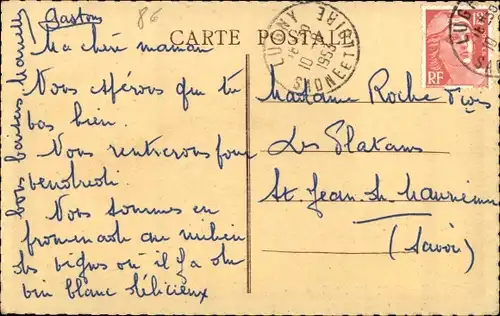 86
CARTE POSTALE
LUGNY
10
1953
SAONE ET LOIRE
RF
Gaston
Ma chère maman
Nous espérons que tu
vas bien.
Nous rentrerons pour
vendredi.
Nous sommes en
promenade au milieu
des vignes où il y a du
vin blanc délicieux
bons baisers
Madame Roche
Les Platanes
St. Jean de Maurienne
(Savoie)